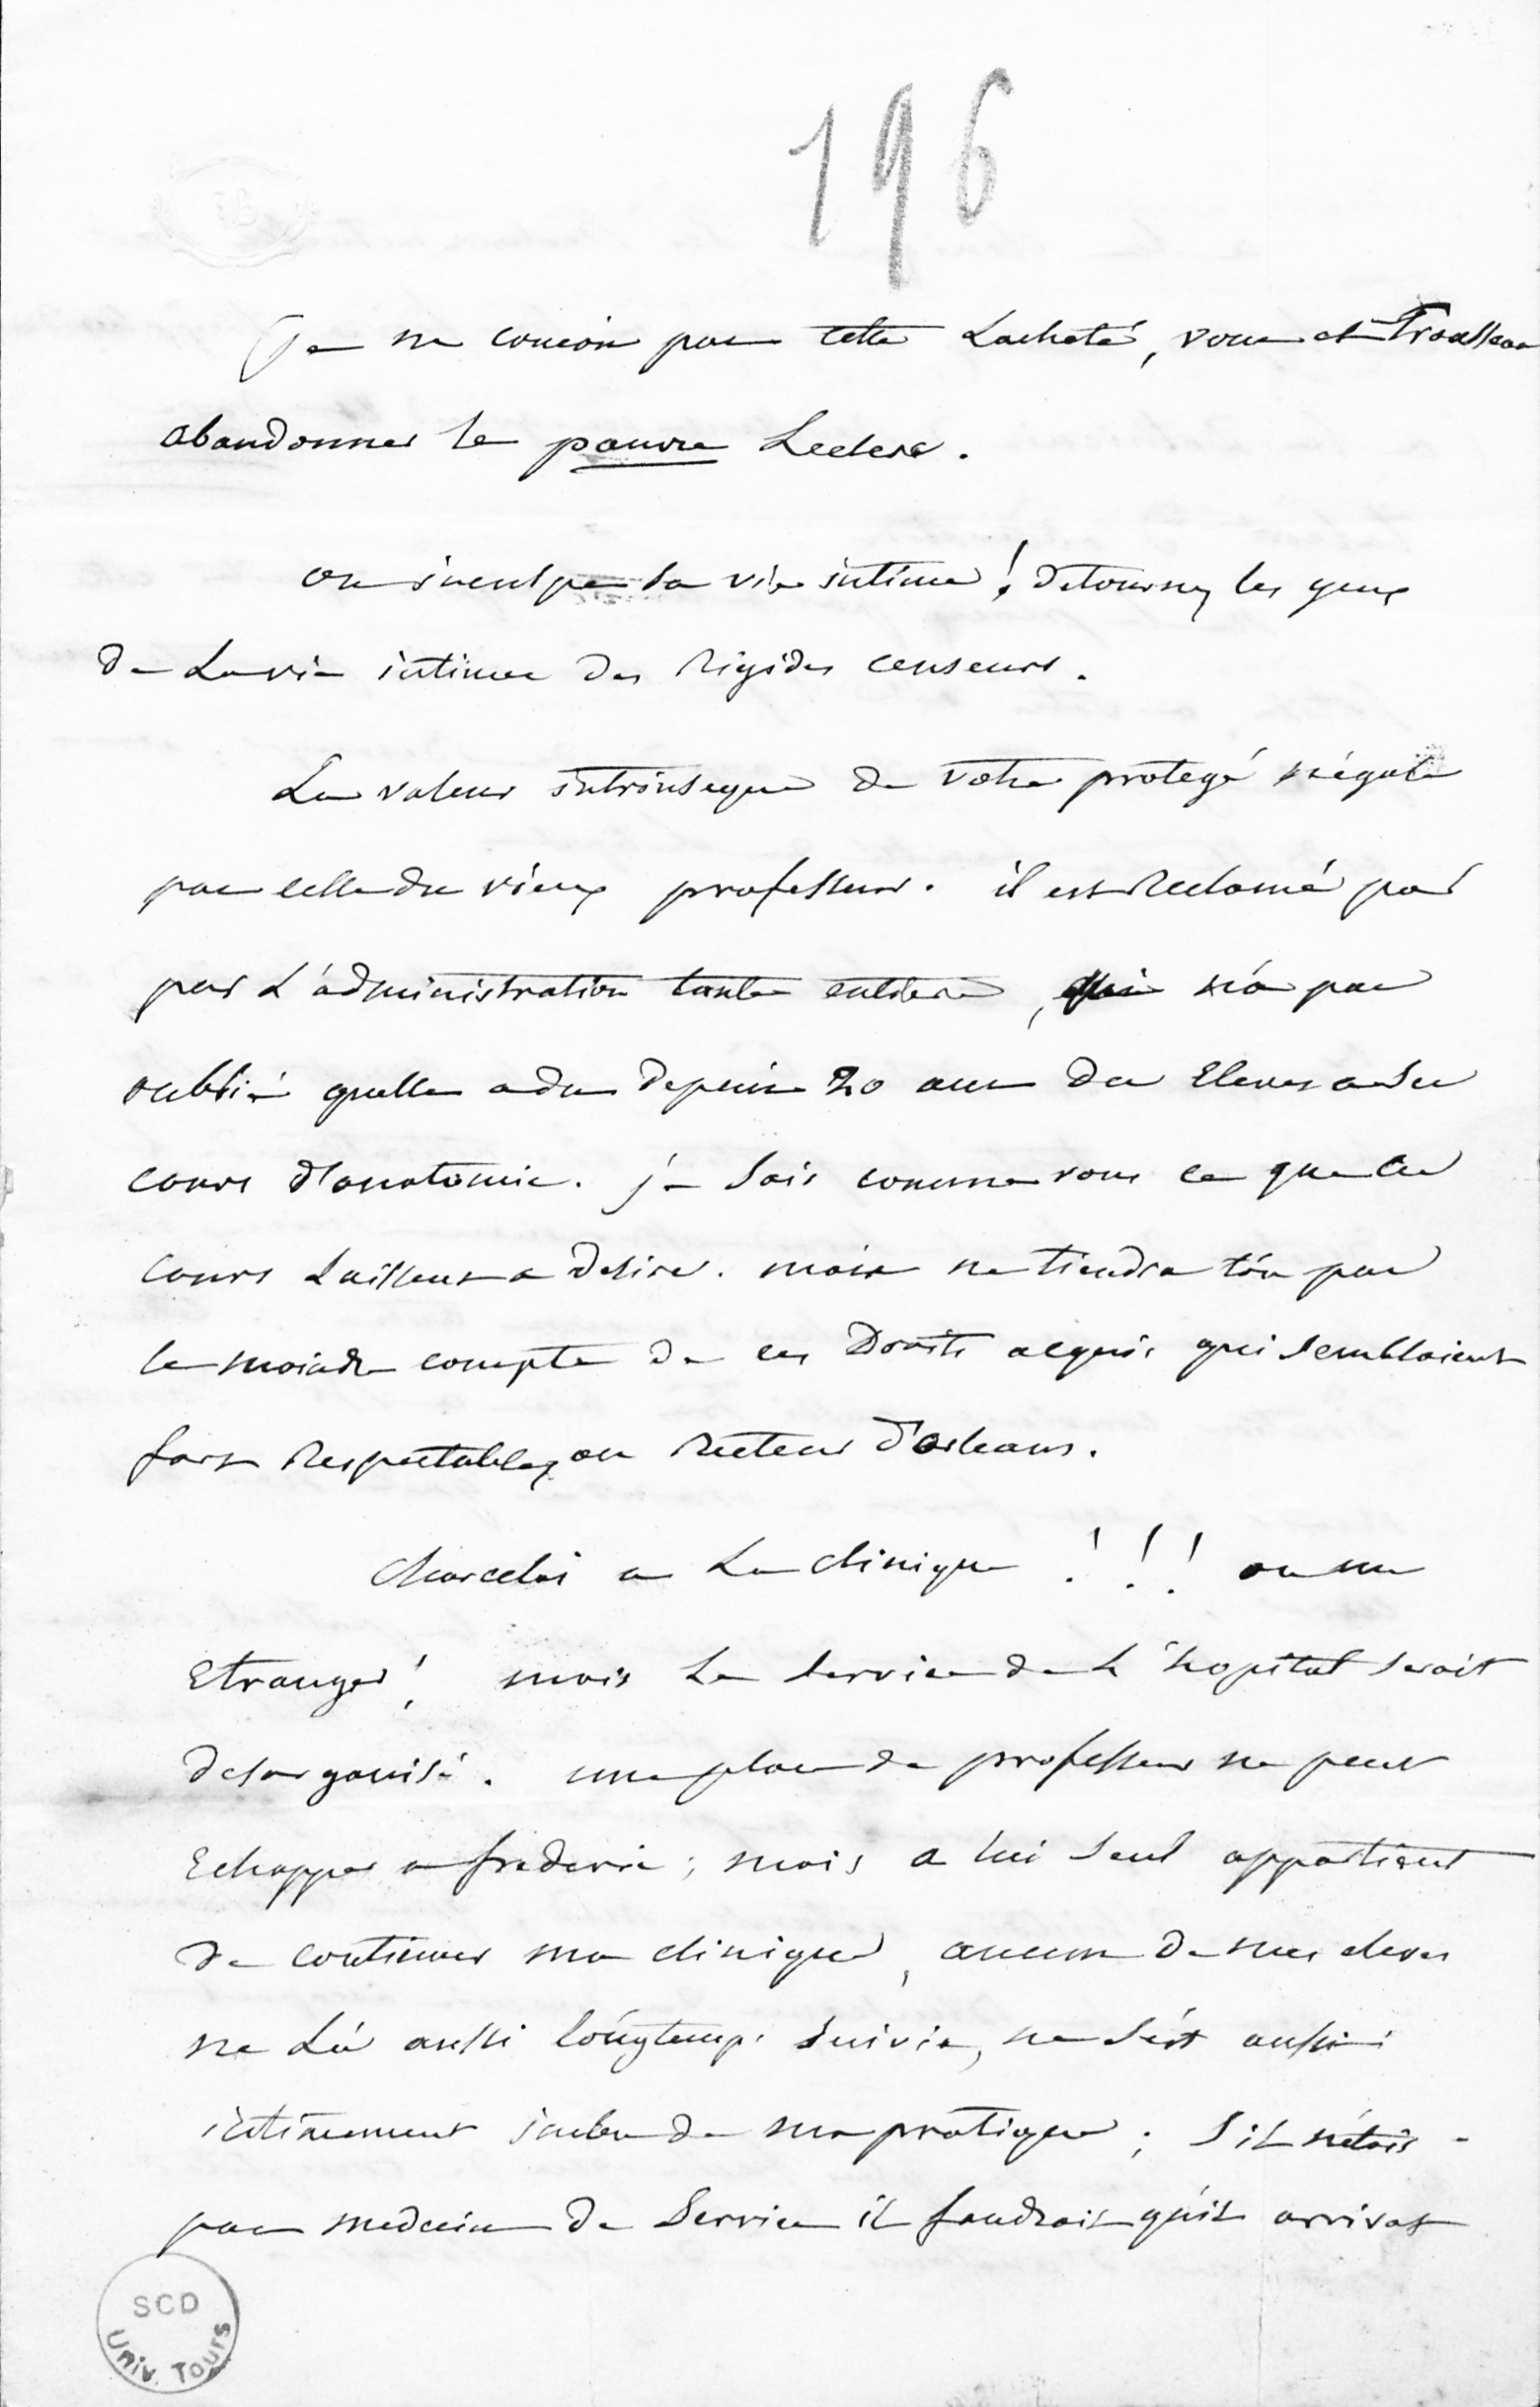 196
Je ne concoir pas cette Lacheté, vous et Trousseau
abandonner le pauvre Leclerc.
on inculpe sa vie intime! detournez les yeux
de La vie intime des Rigides censeurs.
La valeur intrinseque de votre protegé n'égale
pas celle du vieux professeur. il est Reclamé par
par L'administration toute entiere, n'a pas
oublié quelle a du depuis 20 ans des Eleves a ses
cours d'anatomie. je sais comme vous ce que ces
cours Laissent a desirer. mais ne tiendra t'on pas
le moindre compte de ces Droits acquis qui sembloient
fort Respectables au Recteur d'orleans.
charcelai a La clinique !!! ou un
Etranger! mais Le service de L'hopital seroit
desorganisé. une place de professeur ne peut
Echapper a frederic; mais a lui seul appartient
de continuer ma clinique, aucun de mes eleves
ne L'a aussi longtemps suivie, ne s'est aussi
intimement imbu de ma pratique; s'il n'étoit
pas medecin de Service il faudroit qu'il arrivat
SCD
Univ. Tours